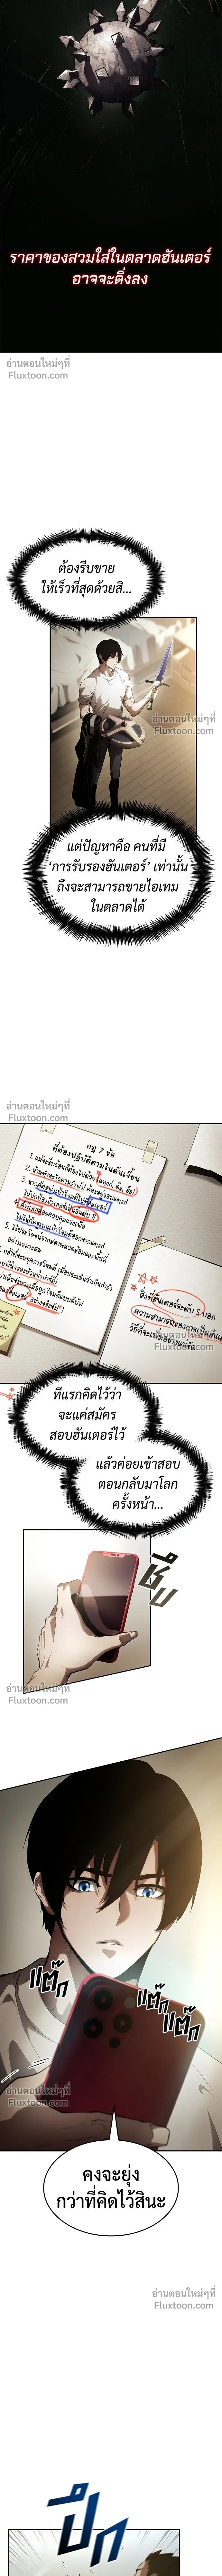 ราคาของสวมใส่ในตลาดฮันเตอร์
อาจจะดิ่งลง
อ่านตอนใหม่ๆที่
Fluxtoon.com
ต้องรีบขาย
ให้เร็วที่สุดด้วยสิ...
อ่านตอนใหม่ๆที่
Fluxtoon.com
แต่ปัญหาคือ คนที่มี
‘การรับรองฮันเตอร์’ เท่านั้น
ถึงจะสามารถขายไอเทม
ในตลาดได้
อ่านตอนใหม่ๆที่
Fluxtoon.com
กฎ 7 ข้อ
ที่ต้องปฏิบัติตามในดันเจี้ยน
สิ่งที่ฮันเตอร์ระดับ S บอก
อ่านตอนใหม่ๆที่
Fluxtoon.com
ทีแรกคิดไว้ว่า
จะแค่สมัคร
สอบฮันเตอร์ไว้
แล้วค่อยเข้าสอบ
ตอนกลับมาโลก
ครั้งหน้า...
ชึบ
อ่านตอนใหม่ๆที่
Fluxtoon.com
แต๊ก
แต๊ก
แต๊ก
อ่านตอนใหม่ๆที่
Fluxtoon.com
คงจะยุ่ง
กว่าที่คิดไว้สินะ
อ่านตอนใหม่ๆที่
Fluxtoon.com
ปึก